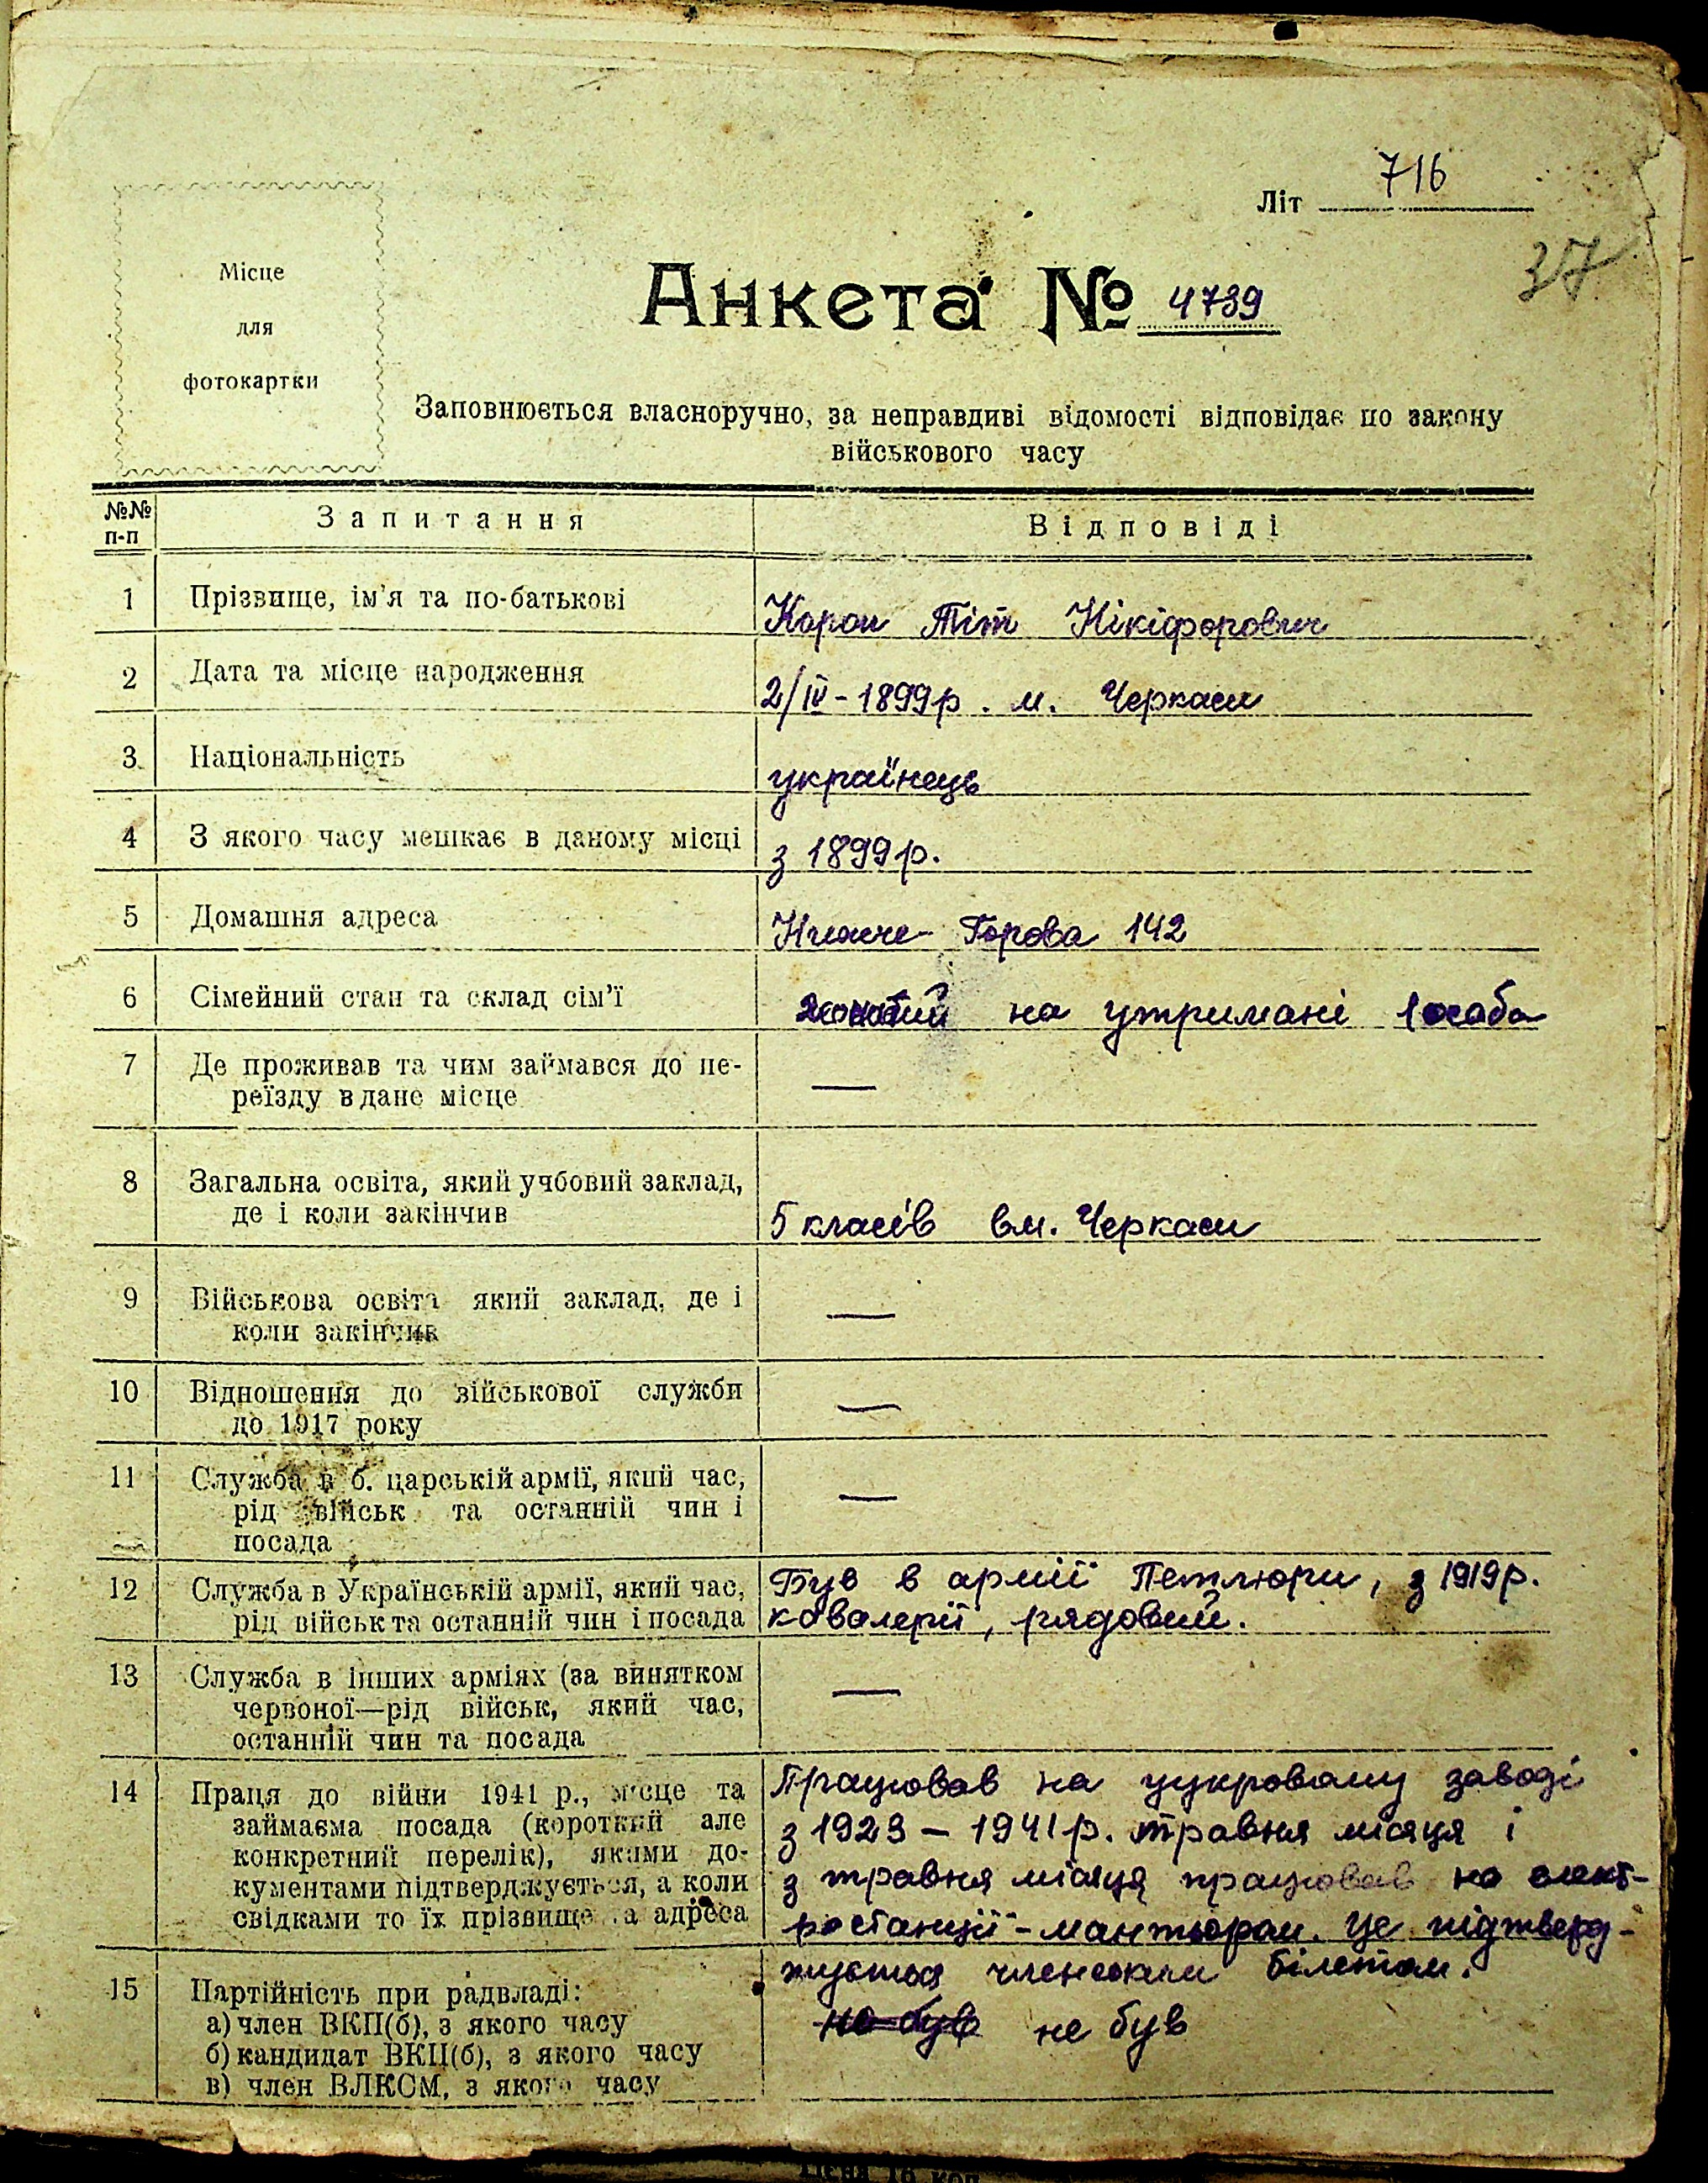 Літ 716
37
Місце
для
фотокартки
Анкета № 4739
Заповнюється власноручно, за неправдиві відомості відповідає по закону
військового часу
№№ п-п
Запитання
Відповіді
1 Прізвище, ім'я та по-батькові
Короп Тіт Нікіфорович
2 Дата та місце народження
2/IV-1899р. м. Черкаси
3 Національність
українець
4 З якого часу мешкає в даному місці
з 1899р.
5 Домашня адреса
Нижче-Горова 142
6 Сімейний стан та склад сім'ї
жонатий на утримані 1 особа
7 Де проживав та чим займався до пе-
реїзду в дане місце
—
8 Загальна освіта, який учбовий заклад,
де і коли закінчив
5 класів в м. Черкаси
9 Військова освіта який заклад, де і
коли закінчив
—
10 Відношення до військової служби
до 1917 року
—
11 Служба в б. царській армії, який час,
рід військ та останній чин і
посада
—
12 Служба в Українській армії, який час,
рід військ та останній чин і посада
Був в армії Петлюри, з 1919р.
кавалерії, рядовий.
13 Служба в інших арміях (за винятком
червоної—рід військ, який час,
останній чин та посада
—
14 Праця до війни 1941 р., місце та
займаєма посада (короткий але
конкретний перелік), якими до-
кументами підтверджується, а коли
свідками то їх прізвище та адреса
Працював на цукровому заводі
з 1923 – 1941р. травня місяця і
з травня місяця працював на елект-
ростанції-мантьором. Це підтверд-
жується членським білетом.
15 Партійність при радвладі:
а) член ВКП(б), з якого часу
б) кандидат ВКП(б), з якого часу
в) член ВЛКСМ, з якого часу
не був не був
Ціна 16 коп.